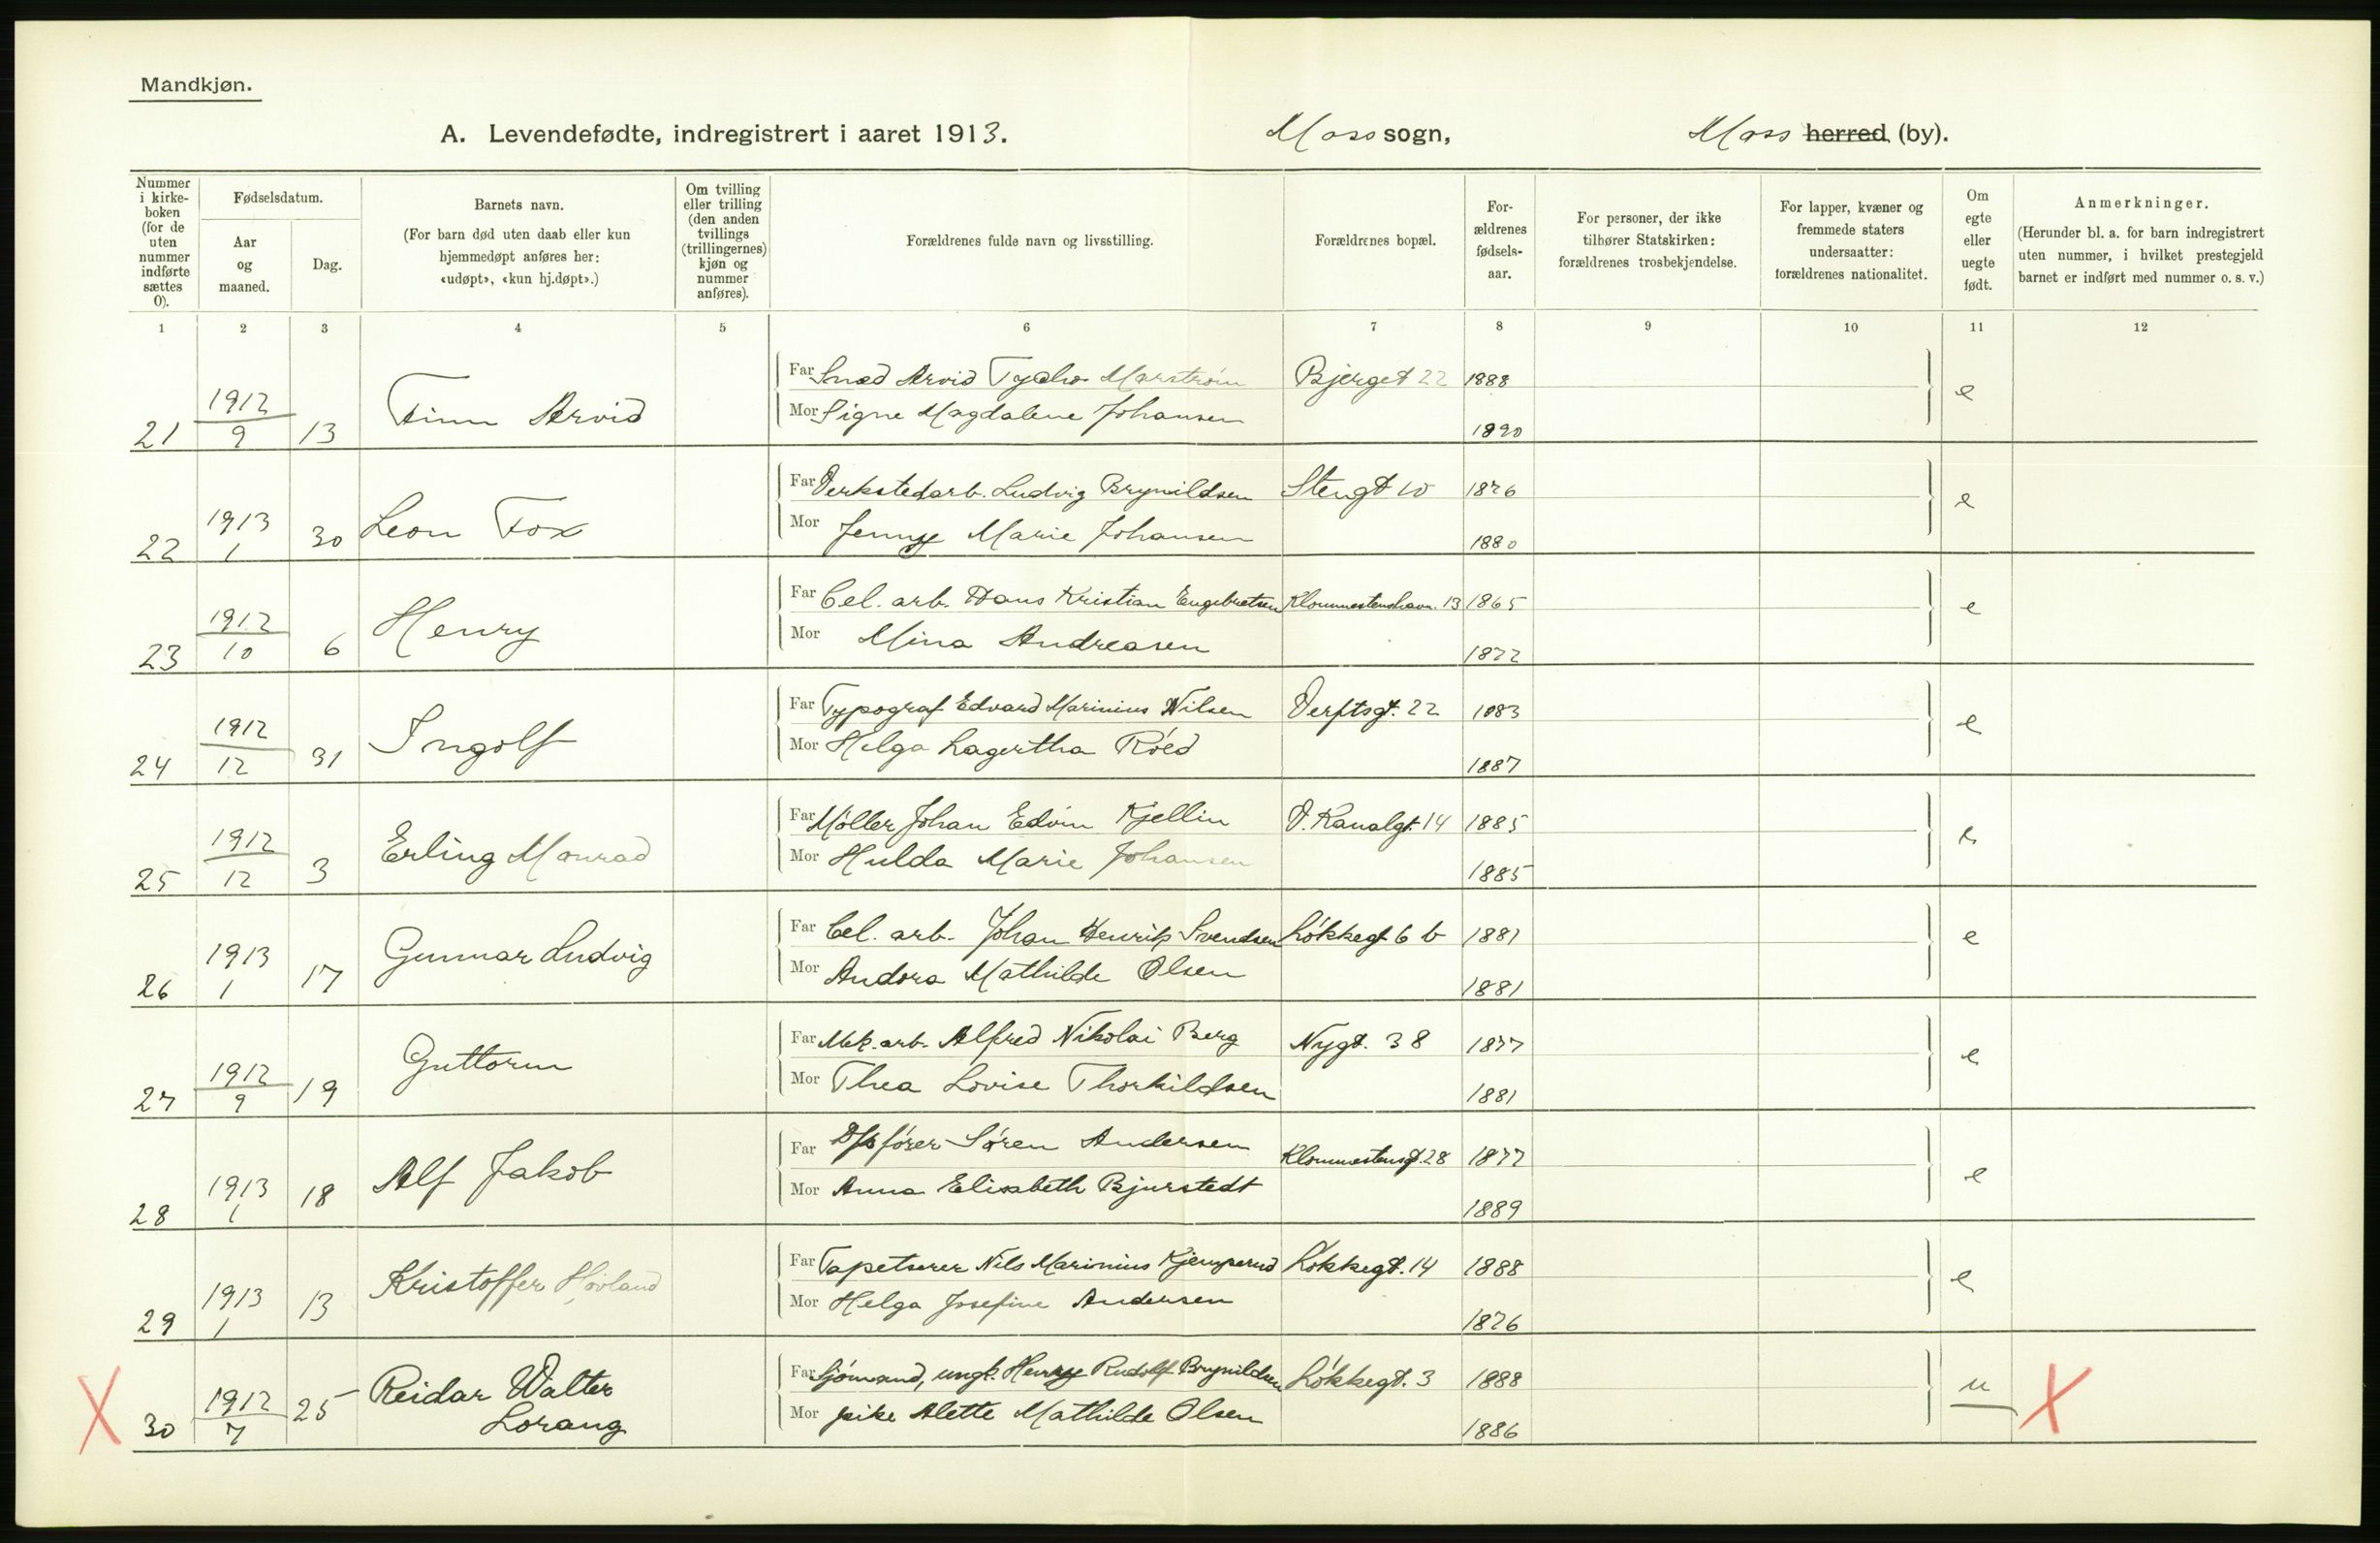 Mandkjøn.
A. Levendefødte, indregistrert i aaret 1913. Moss sogn, Moss herred (by).
Nummer i kirkeboken (for de uten nummer indførte sættes 0).
Fødselsdatum.
Aar og maaned.
Dag.
Barnets navn.
(For barn død uten daab eller kun hjemmedøpt anføres her: «udøpt», «kun hj.døpt».)
Om tvilling eller trilling (den anden tvillings (trillingernes) kjøn og nummer anføres).
Forældrenes fulde navn og livsstilling.
Forældrenes bopæl.
Forældrenes fødselsaar.
For personer, der ikke tilhører Statskirken: forældrenes trosbekjendelse.
For lapper, kvæner og fremmede staters undersaatter: forældrenes nationalitet.
Om egte eller uegte født.
Anmerkninger.
(Herunder bl. a. for barn indregistrert uten nummer, i hvilket prestegjeld barnet er indført med nummer o. s. v.)
1 2 3 4 5 6 7 8 9 10 11 12
21 1912 9 13 Finn Arvid Far Smed Arvid Tycho Marstrøm Bjerget 22 1888 e
Mor Signe Magdalene Johansen 1890
22 1913 1 30 Leon Fox Far Verkstedarb. Ludvig Brynildsen Stengt 10 1876 e
Mor Jenny Marie Johansen 1880
23 1912 10 6 Henry Far Cel. arb. Hans Kristian Engebretsen 13 1865 e
Mor Mina Andreasen 1872
24 1912 12 31 Ingolf Far Typograf Edvard Marinius Nilsen Verftsgt. 22 1883 e
Mor Helga Lagertha Röed 1887
25 1912 12 3 Erling Monrad Far Möller Johan Edvin Kjellin V. Kanalgt. 14 1885 e
Mor Hulda Marie Johansen 1885
26 1913 1 17 Gunnar Ludvig Far Cel. arb. Johan Henrik Svendsen Løkkegt 6 b 1881 e
Mor Andora Mathilde Olsen 1881
27 1912 9 19 Guttorm Far Mek. arb. Alfred Nikolai Berg Nygt. 38 1877 e
Mor Thea Lovise Thorkildsen 1881
28 1913 1 18 Alf Jakob Far fører Søren Andersen 28 1877 e
Mor Anna Elisabeth Bjurstedt 1889
29 1913 1 13 Kristoffer Høvland Far Tapetserer Nils Marinius Kjemperud Løkkegt. 14 1888 e
Mor Helga Josefine Andersen 1876
X 30 1912 7 25 Reidar Walter Far Sjømand, ungk. Henry Rudolf Brynildsen Løkkegt. 3 1888 u X
Lorang Mor pike Alette Mathilde Olsen 1886